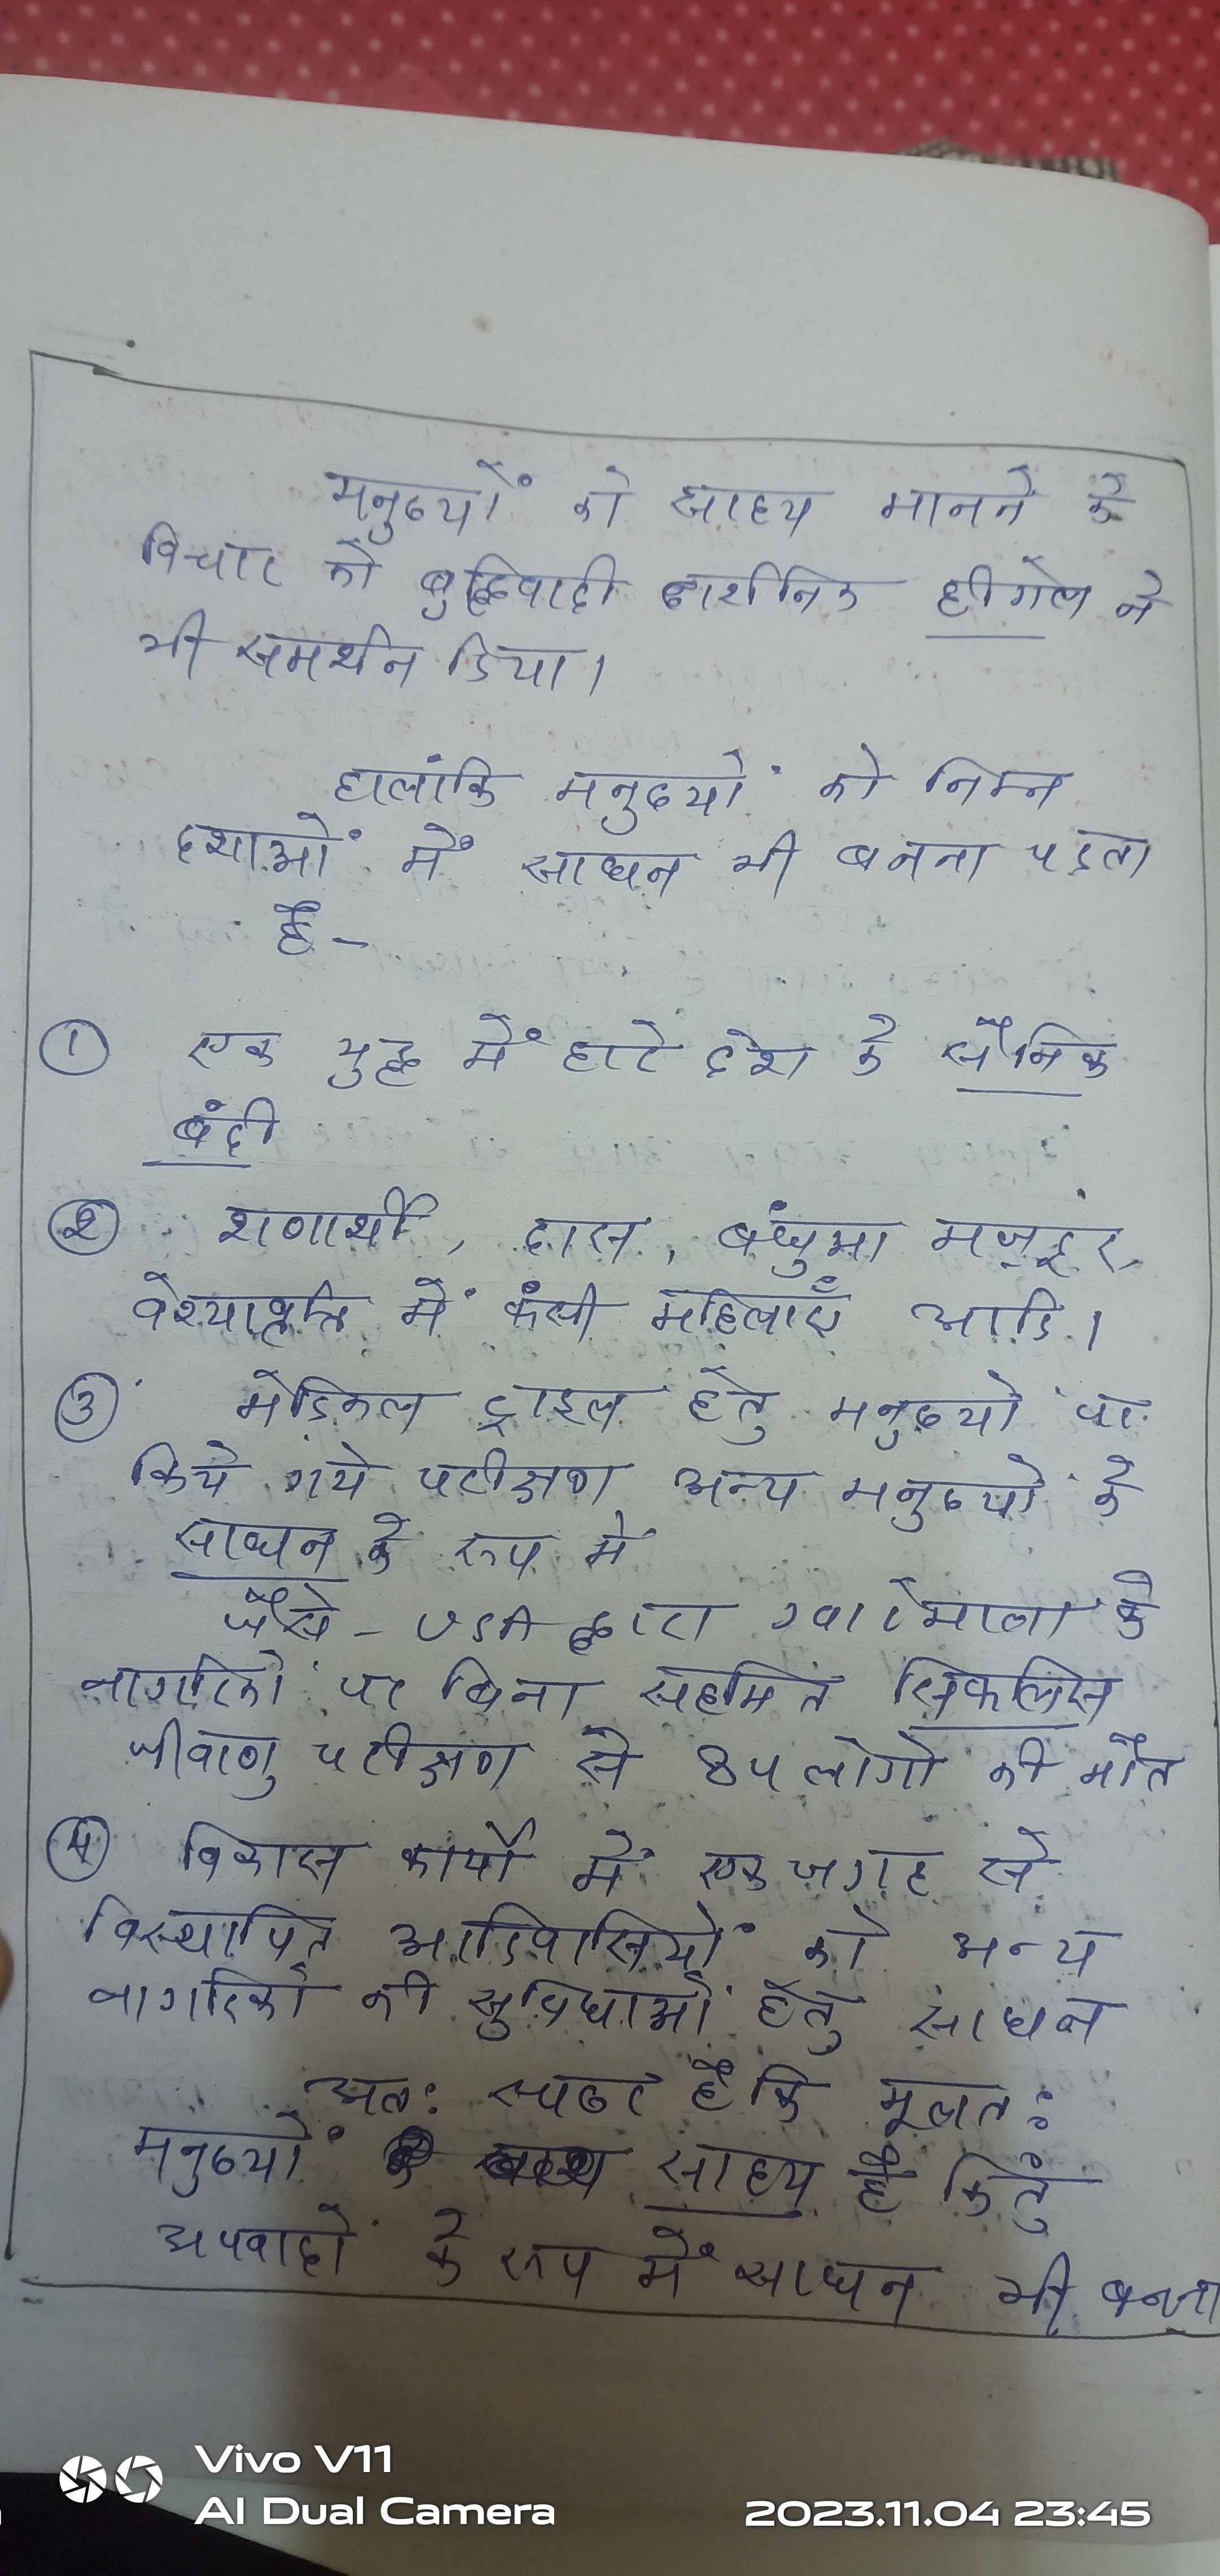 मनुष्यों को साध्य मानने के
विचार को बुद्धिवादी दार्शनिक हीगेल ने
भी समर्थन दिया।
हालांकि मनुष्यों को निम्न
दशाओं में साधन भी बनना पड़ता
है -
① एक युद्ध में हारे देश के सैनिक
बंदी
② शणार्थी, दास, बंधुआ मजदूर,
वेश्यावृत्ति में फंसी महिलाएँ आदि।
③ मेडिकल ट्राइल हेतु मनुष्यों पर
किये गये परीक्षण अन्य मनुष्यों के
साधन के रूप में
जैसे - USA द्वारा ग्वाटेमाला के
नागरिकों पर बिना सहमति सिफलिस
जीवाणु परीक्षण से 84 लोगों की मौत
④ विकास कार्यों में एक जगह से
विस्थापित आदिवासियों को अन्य
नागरिकों की सुविधाओं हेतु साधन
अतः स्पष्ट है कि मूलतः
मनुष्यों साध्य है किंतु
अपवादों के रूप में साधन भी बनता
Vivo V11
AI Dual Camera
2023.11.04 23:45